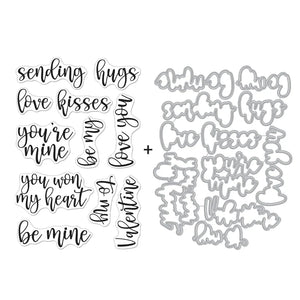 sending hugs
love kisses
you're
mine
be my
love you
you won
my heart
to my
Valentine
be mine
+